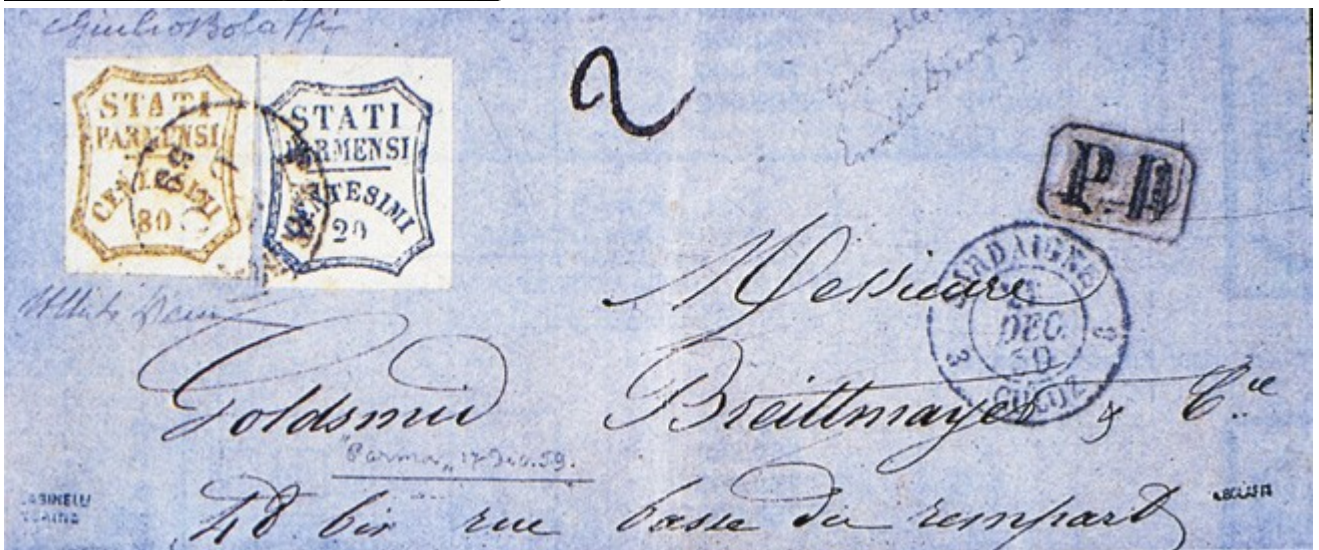 Giulio Bolaffi
STATI
PARMENSI
CENTESIMI
80
STATI
PARMENSI
CENTESIMI
20
59
2
Emilio Diena
P.D
SARDAIGNE
21
DEC.
59
CULOZ
3 3
Messieurs
Goldsmid Breittmayer & Cie
"Parma" 17 Dic. 59.
48 bis rue basse du rempart